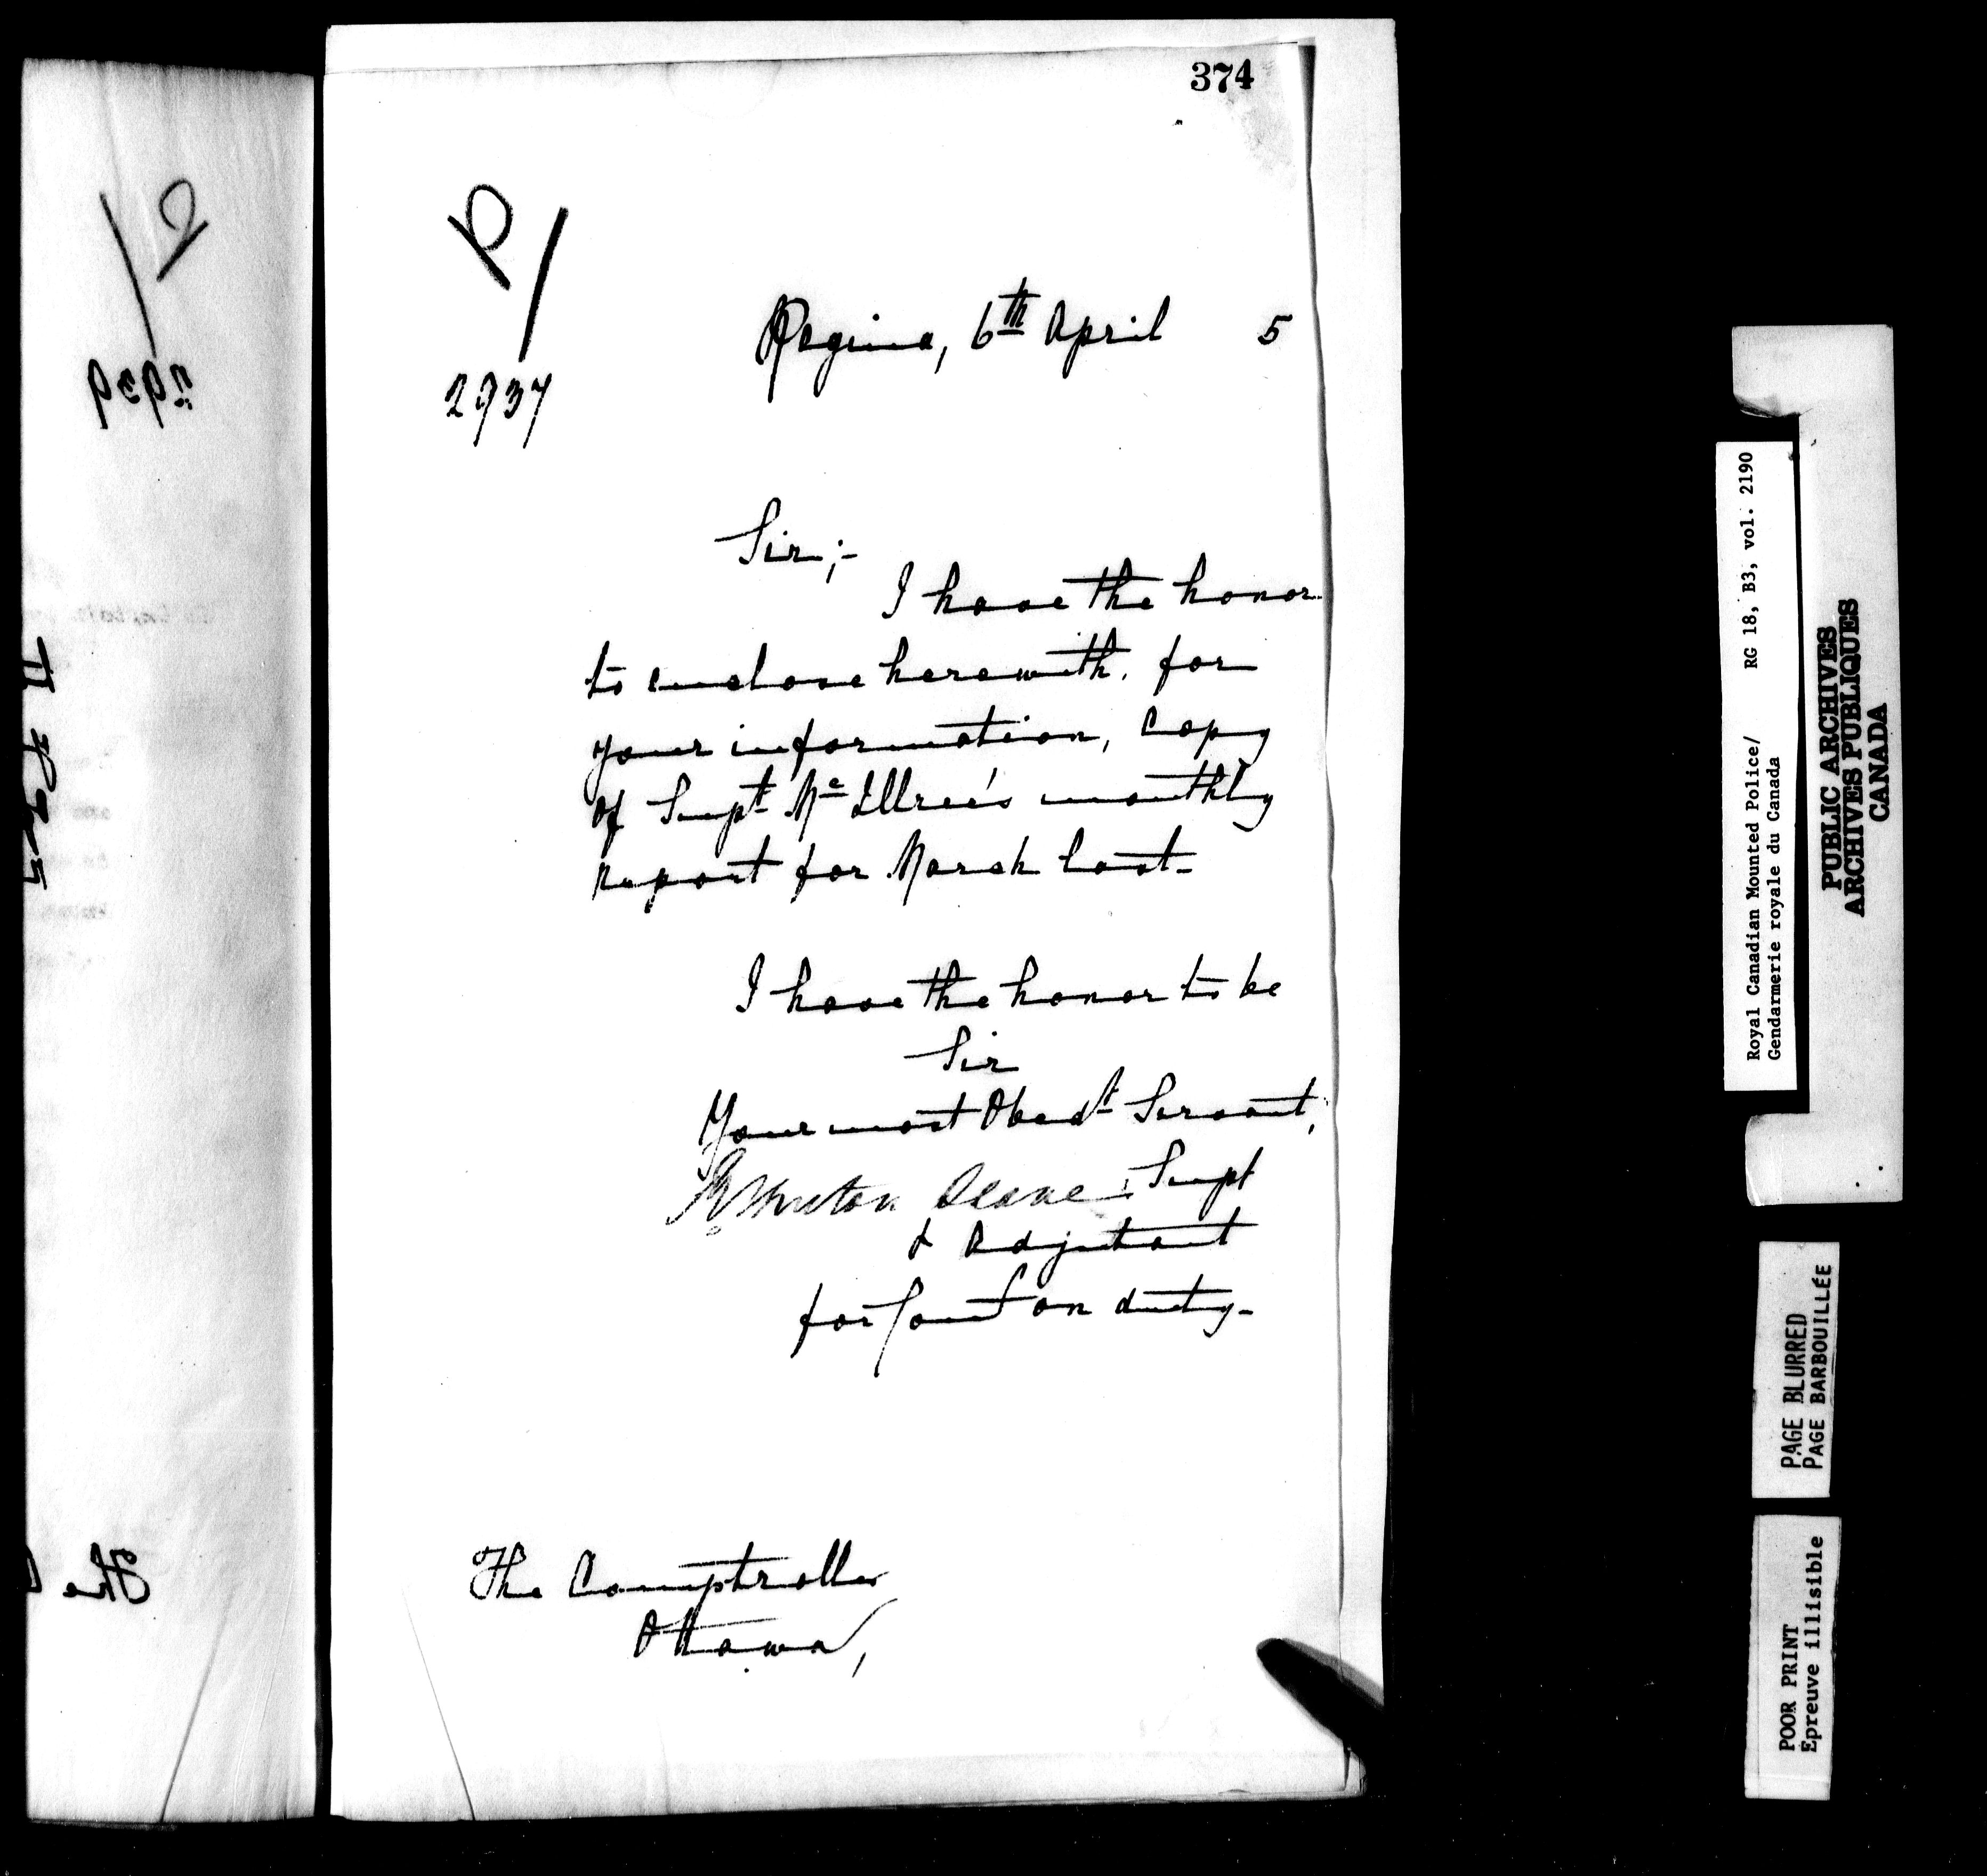 374
P/
2937
Regina, 6th April 5
Sir;-
I have the honor
to enclose herewith, for
your information, Copy
of Supt McIllree's monthly
report for March last-
I have the honor to be
Sir
Your most Obedt Servant,
R Burton Deane Supt
& Adjutant
for Comr on duty-
The Comptroller
Ottawa,
Royal Canadian Mounted Police/ RG 18, B3, vol. 2190
Gendarmerie royale du Canada
PUBLIC ARCHIVES
ARCHIVES PUBLIQUES
CANADA
PAGE BLURRED
PAGE BARBOUILLÉE
POOR PRINT
Epreuve illisible